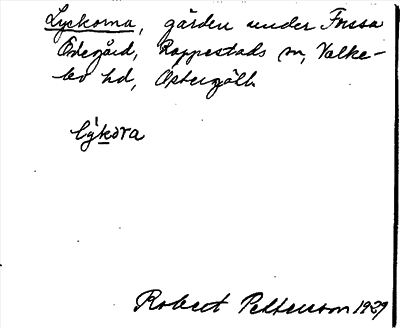 Lyckorna, gården under Forssa
Ödegård, Rappestads sn, Valke-
bo hd, Östergötl.
lýkoṙa
Robert Pettersson 1929